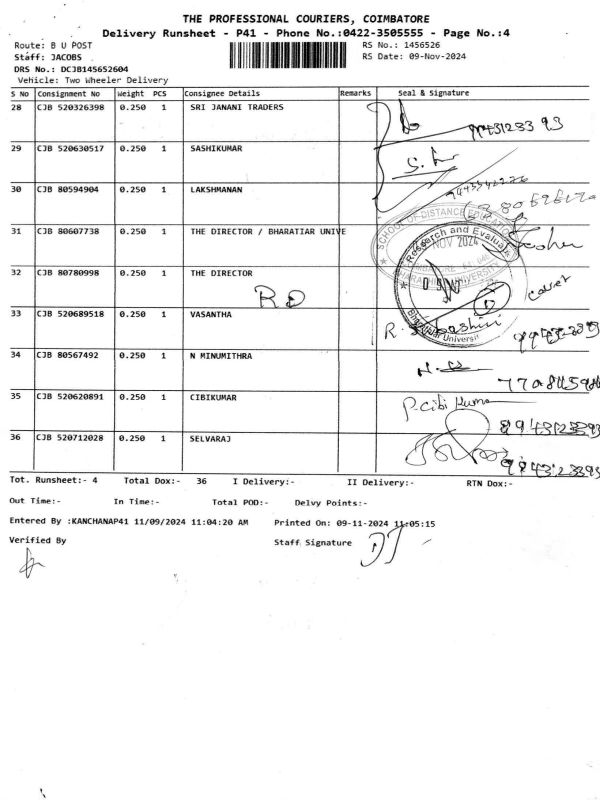 THE PROFESSIONAL COURIERS, COIMBATORE
Delivery Runsheet - P41 - Phone No.:0422-3505555 - Page No.:4
Route: B U POST RS No.: 1456526
Staff: JACOBS RS Date: 09-Nov-2024
DRS No.: DCJB145652604
Vehicle: Two Wheeler Delivery
S No Consignment No Weight PCS Consignee Details Remarks Seal & Signature
28 CJB 520326398 0.250 1 SRI JANANI TRADERS
29 CJB 520630517 0.250 1 SASHIKUMAR
30 CJB 80594904 0.250 1 LAKSHMANAN
SCHOOL OF DISTANCE EDUCATION
31 CJB 80607738 0.250 1 THE DIRECTOR / BHARATIAR UNIVE
Research and Evaluati
NOV 2024
32 CJB 80780998 0.250 1 THE DIRECTOR
RD
Bharathiar Universit
33 CJB 520689518 0.250 1 VASANTHA
34 CJB 80567492 0.250 1 N MINUMITHRA
35 CJB 520620891 0.250 1 CIBIKUMAR P.Cibi Kuma
36 CJB 520712028 0.250 1 SELVARAJ
Tot. Runsheet:- 4 Total Dox:- 36 I Delivery:- II Delivery:- RTN Dox:-
Out Time:- In Time:- Total POD:- Delvy Points:-
Entered By :KANCHANAP41 11/09/2024 11:04:20 AM Printed On: 09-11-2024 11:05:15
Verified By Staff Signature